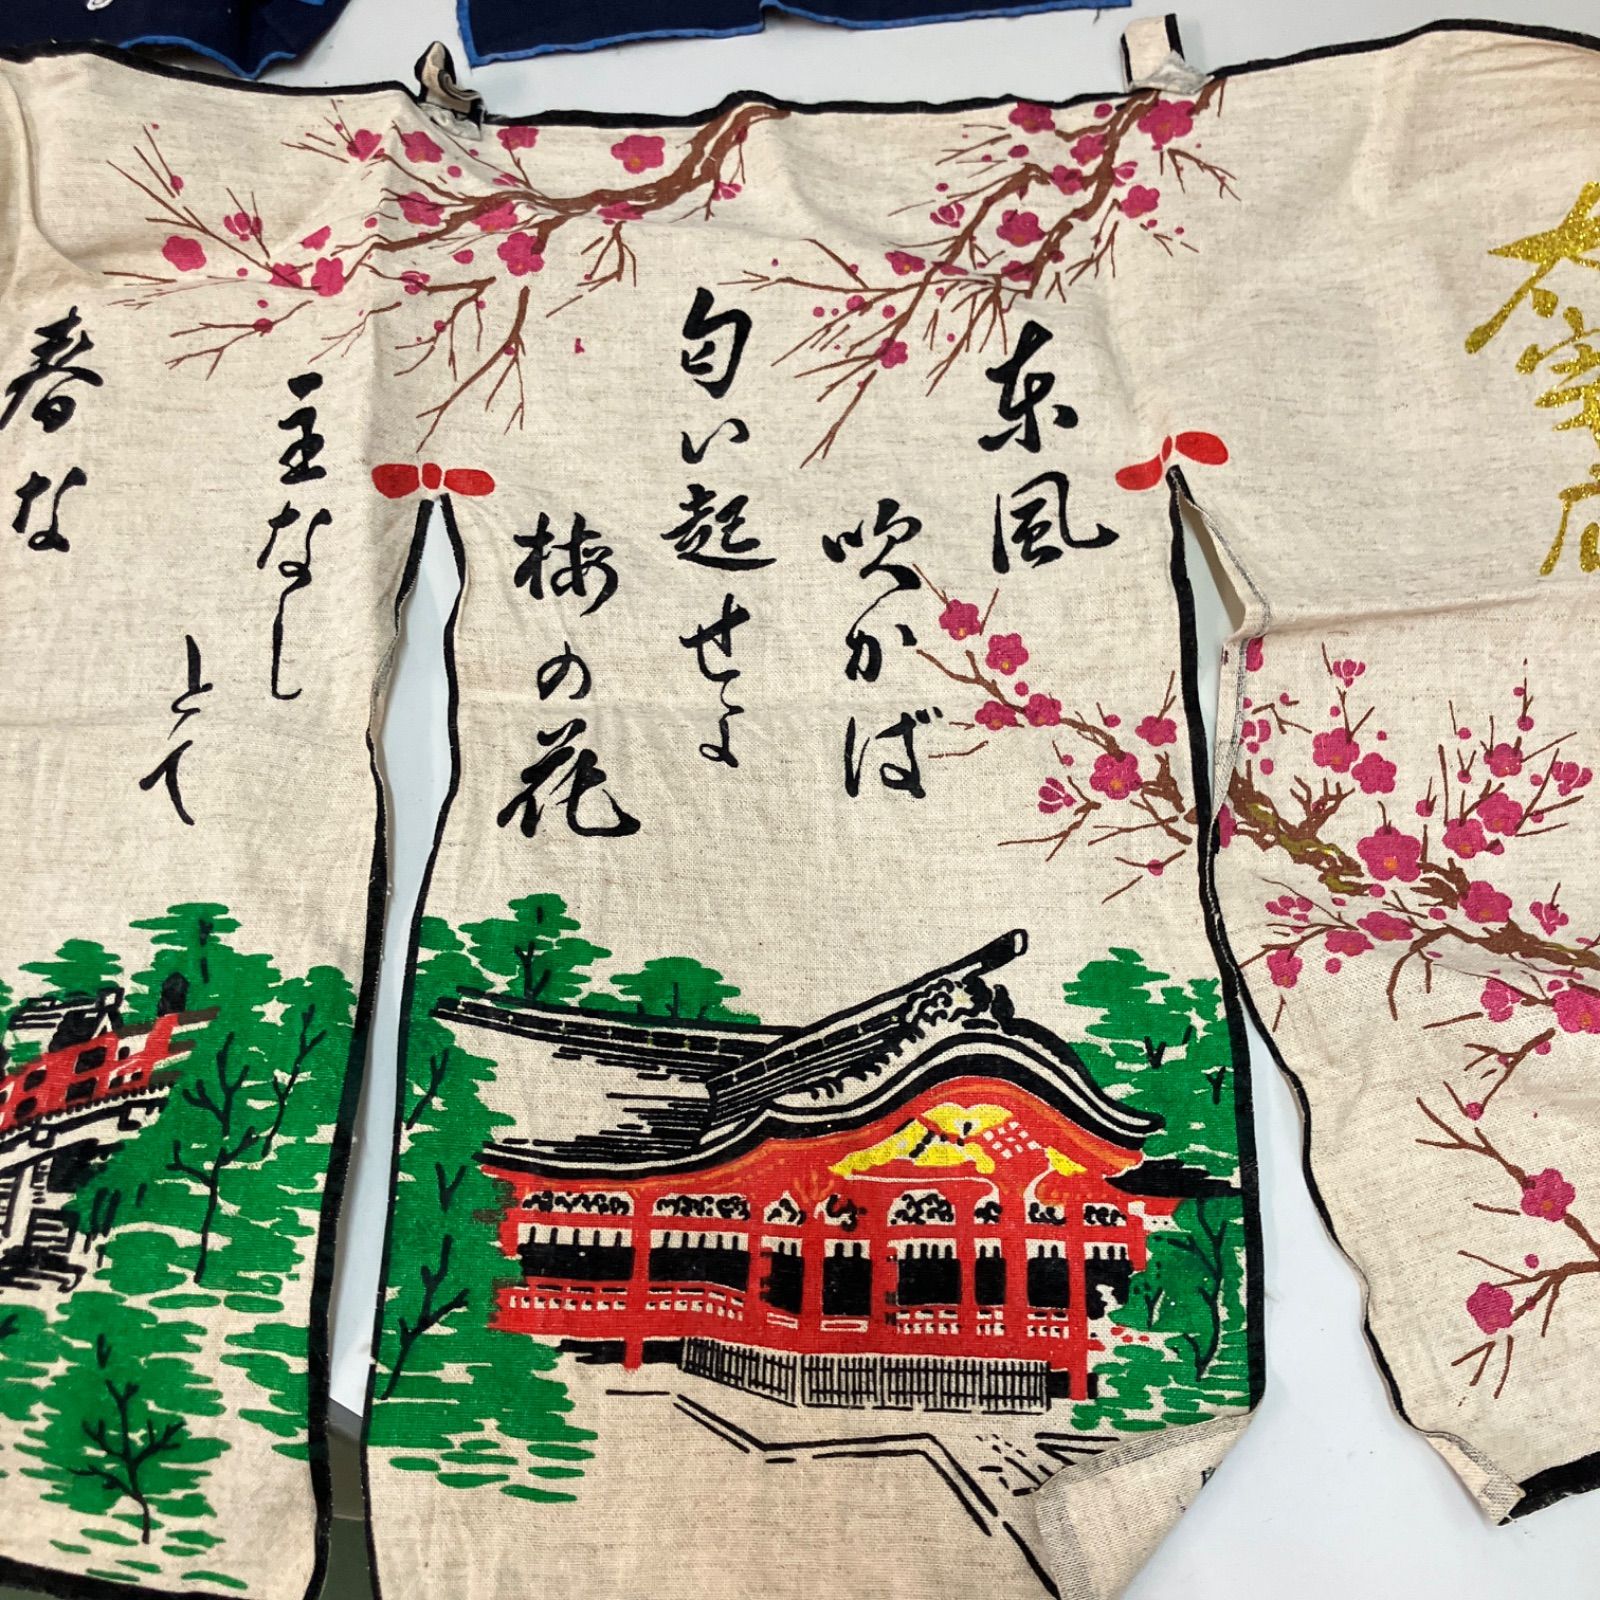 太宰府
東風
吹かば
匂い起せよ
梅の花
主なし
とて
春な